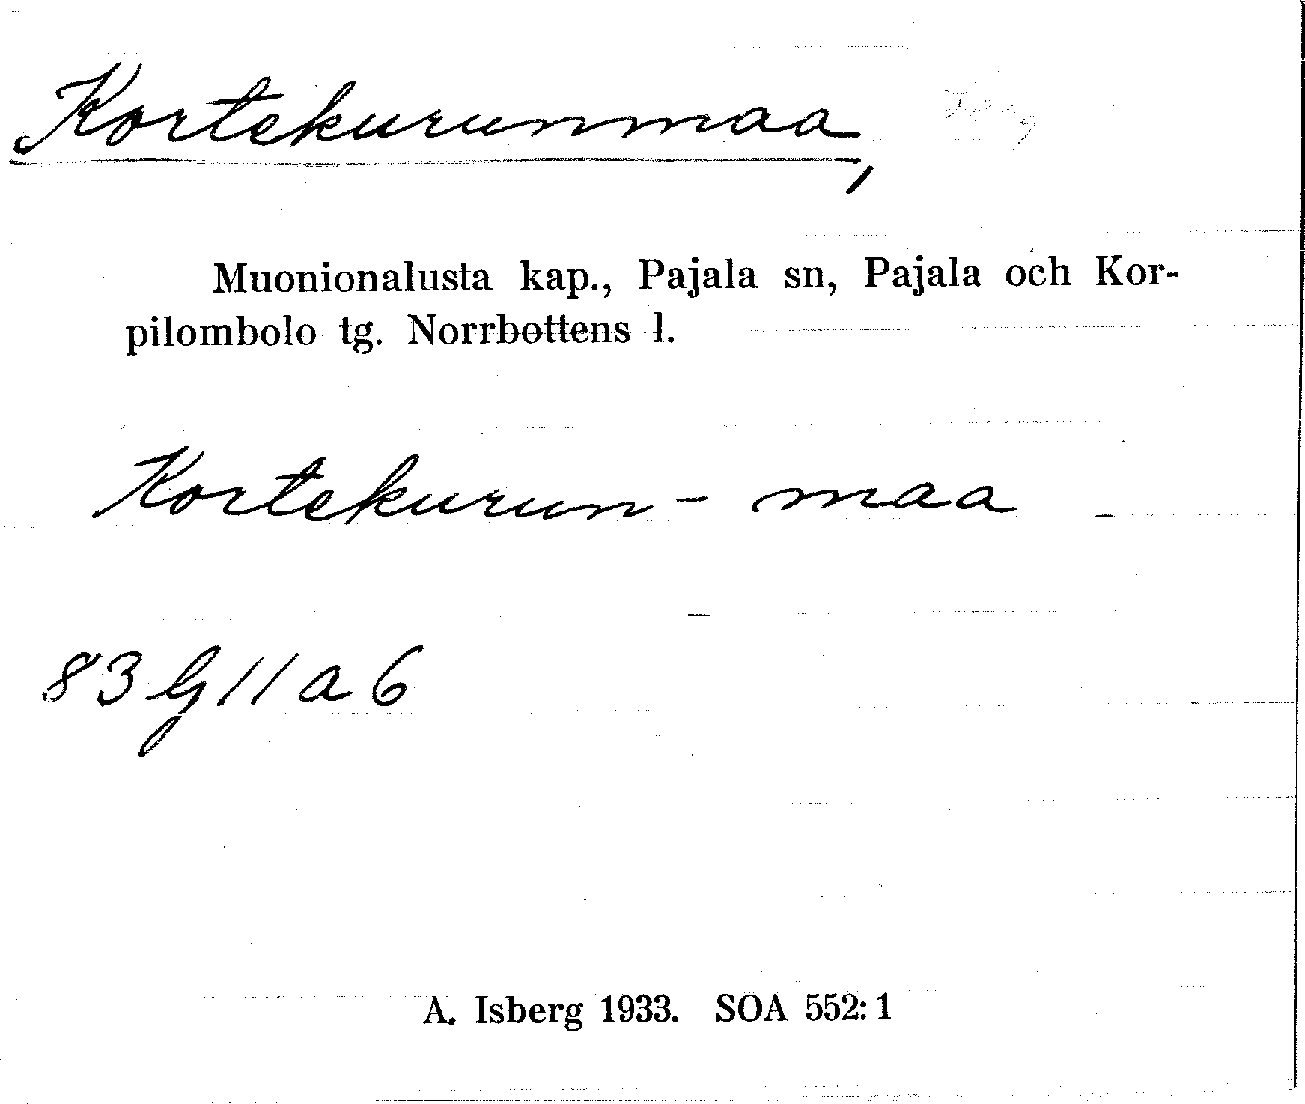 Kortekurunmaa,
Muonionalusta kap., Pajala sn, Pajala och Kor-
pilombolo tg. Norrbottens l.
Kortekurun - maa
83 G 11 a 6
A. Isberg 1933. SOA 552: 1